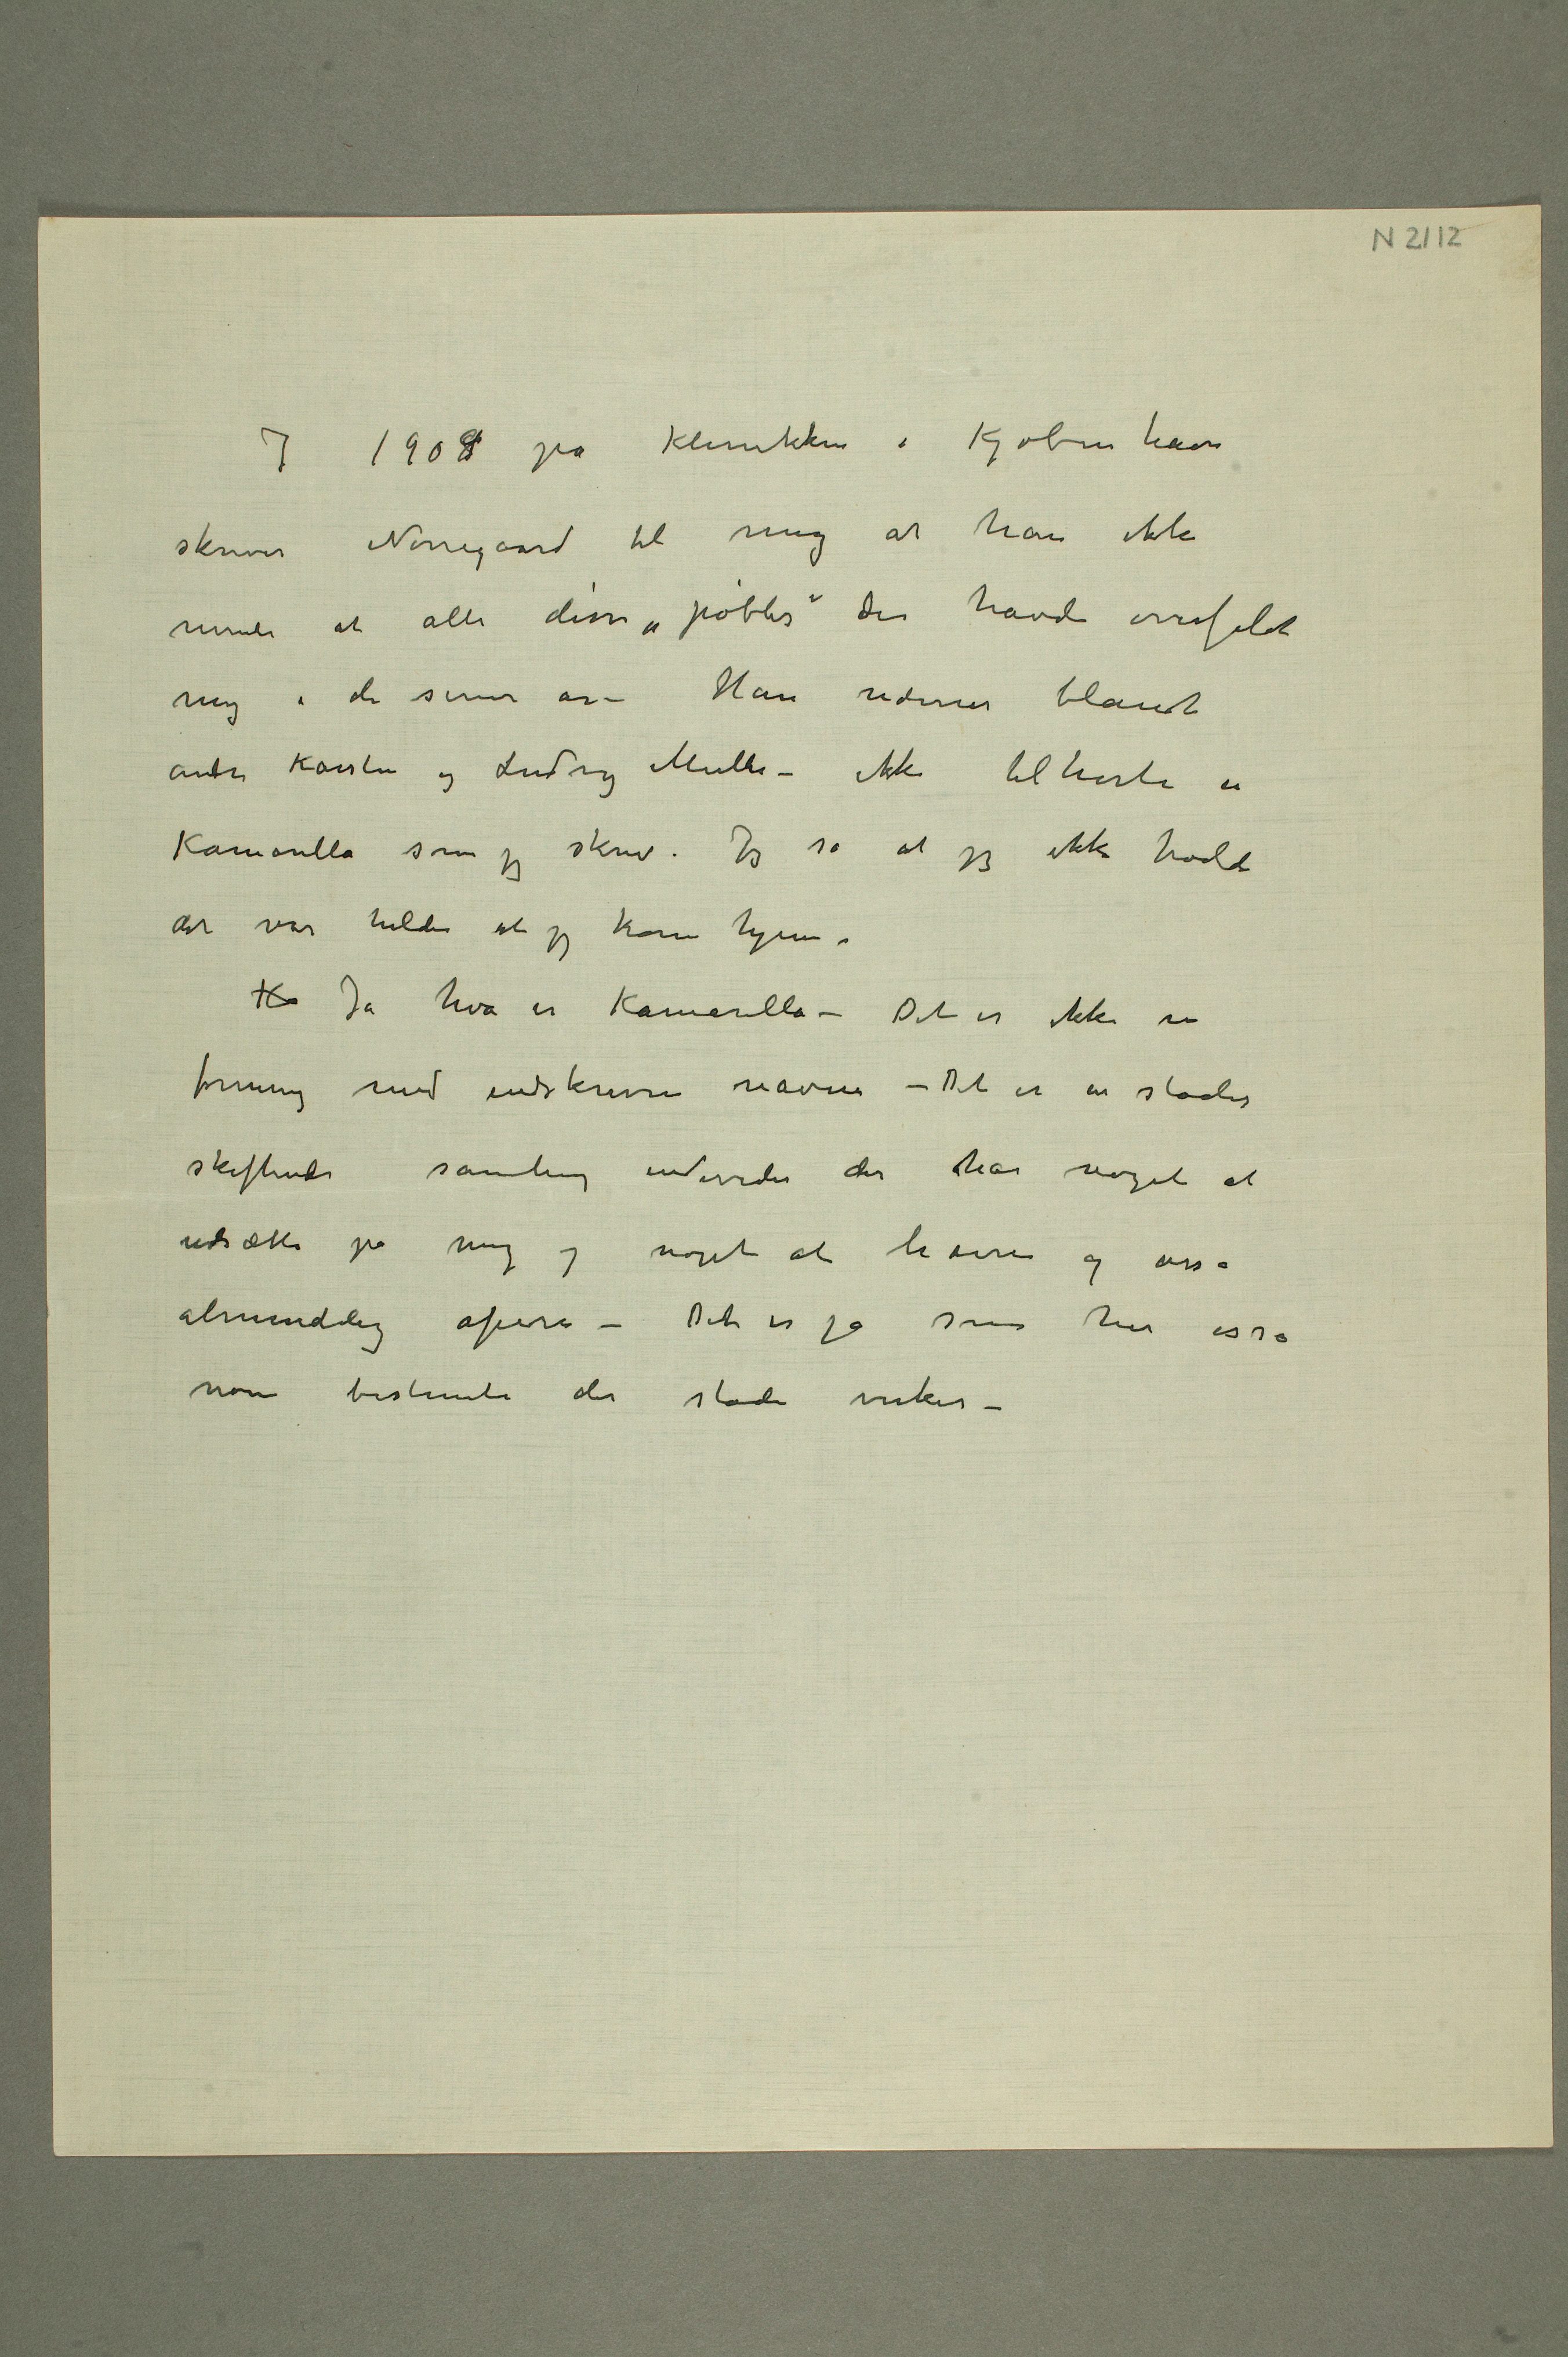 N 2112
I 1908 på Klinikken i Kjøbenhavn
skriver Nørregaard til mig at han ikke
mente at alle disse „pøbler" der havde overfaldt
mig i de senere år – Han nævner blandt
andre Karsten og Ludvig Müller – ikke tilhørte en
Kamarilla som jeg skrev. Jeg sa at jeg ikke trodde
det var heldig at jeg kom hjem.
Ka Ja hva er Kamarilla – Det er ikke en
forening med indskrevne navne – Det er en stadig
skiftende samling individer der har noget at
udsætte på mig og noget at hævne og osså
almindelig apere – Det er jo som her osså
noen bestemte der stadig virker –